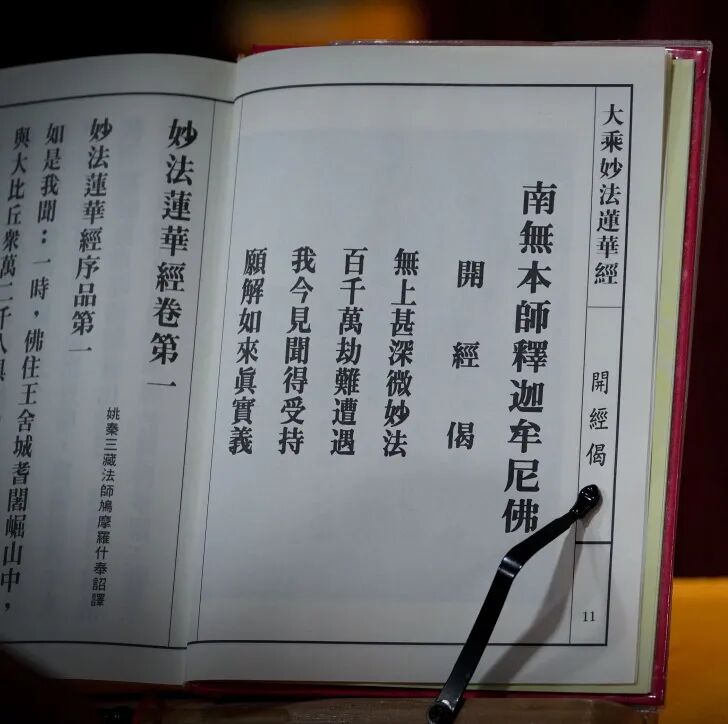 大乘妙法蓮華經
開經偈
11
南無本師釋迦牟尼佛
開經偈
無上甚深微妙法
百千萬劫難遭遇
我今見聞得受持
願解如來眞實義
妙法蓮華經卷第一
姚秦三藏法師鳩摩羅什奉詔譯
妙法蓮華經序品第一
如是我聞：一時，佛住王舍城耆闍崛山中，
與大比丘衆萬二千人俱